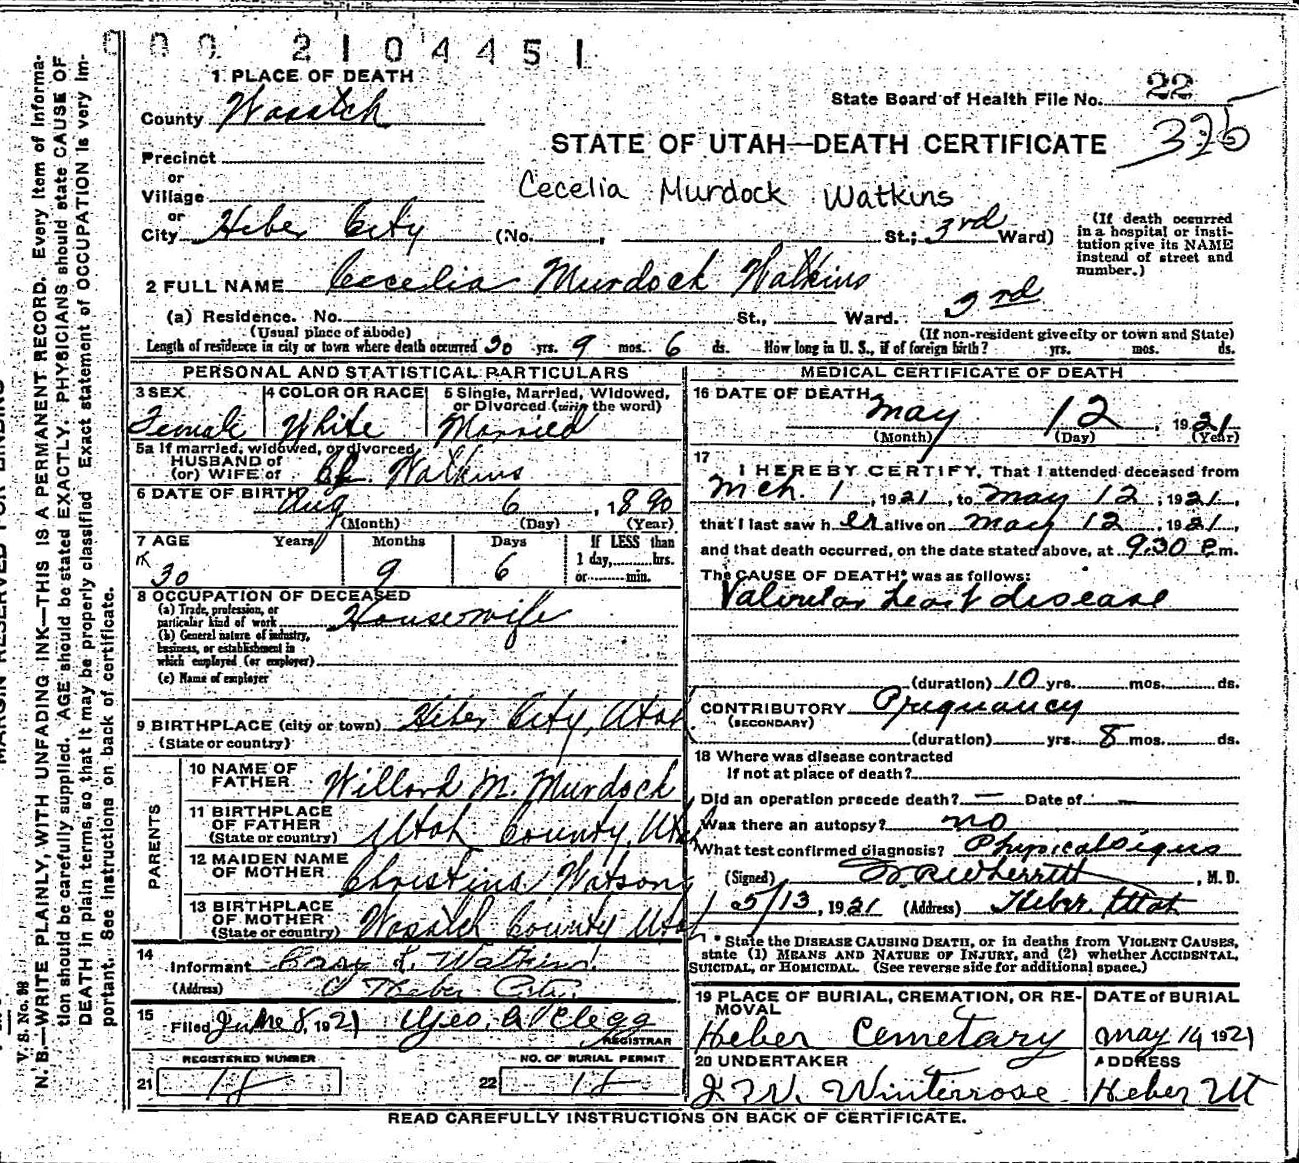 000 2104451
1 PLACE OF DEATH
County Wasatch
State Board of Health File No. 22
325
STATE OF UTAH—DEATH CERTIFICATE
Precinct
or
Village
Cecelia Murdock Watkins
or
City Heber City (No. , St.; 3rd Ward)
(If death occurred in a hospital or institution give its NAME instead of street and number.)
2 FULL NAME Cecelia Murdock Watkins
(a) Residence. No. St., Ward. 3rd
(Usual place of abode) (If non-resident give city or town and State)
Length of residence in city or town where death occurred 30 yrs. 9 mos. 6 ds. How long in U. S., if of foreign birth? yrs. mos. ds.
PERSONAL AND STATISTICAL PARTICULARS
3 SEX Female
4 COLOR OR RACE White
5 Single, Married, Widowed, or Divorced (write the word) Married
5a If married, widowed, or divorced
HUSBAND of
(or) WIFE of Watkins
6 DATE OF BIRTH Aug 6, 1890
(Month) (Day) (Year)
7 AGE Years Months Days If LESS than
1 day,.....hrs.
or.....min.
30 9 6
8 OCCUPATION OF DECEASED
(a) Trade, profession, or particular kind of work Housewife
(b) General nature of industry, business, or establishment in which employed (or employer)
(c) Name of employer
9 BIRTHPLACE (city or town) Heber City, Utah
(State or country)
PARENTS
10 NAME OF FATHER Willord M. Murdock
11 BIRTHPLACE OF FATHER (State or country) Utah County, Utah
12 MAIDEN NAME OF MOTHER Christina Watson
13 BIRTHPLACE OF MOTHER (State or country) Wasatch County Utah
14 Informant L. Watkins
(Address) Heber City
15 Filed June 8, 1921 Geo. A Clegg
REGISTRAR
REGISTERED NUMBER NO. OF BURIAL PERMIT
21 18 22 18
MEDICAL CERTIFICATE OF DEATH
16 DATE OF DEATH May 12, 1921
(Month) (Day) (Year)
17 I HEREBY CERTIFY, That I attended deceased from
Mch. 1, 1921, to May 12, 1921,
that I last saw her alive on May 12, 1921,
and that death occurred, on the date stated above, at 9.30 P.m.
The CAUSE OF DEATH* was as follows:
Valvular heart disease
(duration) 10 yrs. mos. ds.
CONTRIBUTORY Pregnancy
(SECONDARY)
(duration) yrs. 8 mos. ds.
18 Where was disease contracted
If not at place of death?
Did an operation precede death? — Date of —
Was there an autopsy? no
What test confirmed diagnosis? Physical Signs
(Signed) Wherritt, M. D.
5/13, 1921 (Address) Heber, Utah
* State the DISEASE CAUSING DEATH, or in deaths from VIOLENT CAUSES,
state (1) MEANS AND NATURE OF INJURY, and (2) whether ACCIDENTAL,
SUICIDAL, or HOMICIDAL. (See reverse side for additional space.)
19 PLACE OF BURIAL, CREMATION, OR REMOVAL DATE OF BURIAL
Heber Cemetary May 14 1921
20 UNDERTAKER ADDRESS
J. W. Winterrose Heber Ut
READ CAREFULLY INSTRUCTIONS ON BACK OF CERTIFICATE.
MARGIN RESERVED FOR BINDING
V. S. No. 98
N. B.—WRITE PLAINLY, WITH UNFADING INK—THIS IS A PERMANENT RECORD. Every item of informa-
tion should be carefully supplied. AGE should be stated EXACTLY. PHYSICIANS should state CAUSE OF
DEATH in plain terms, so that it may be properly classified. Exact statement of OCCUPATION is very im-
portant. See instructions on back of certificate.